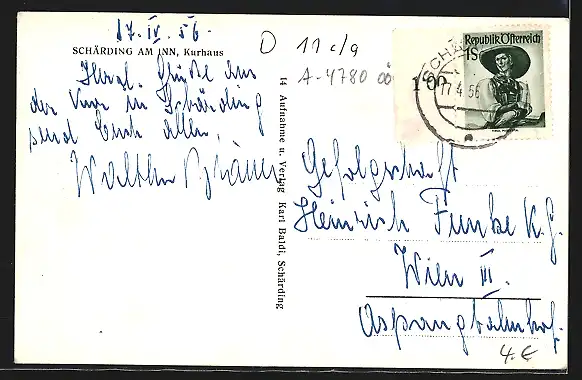 17. IV. 56.
SCHÄRDING AM INN, Kurhaus
D 11 c/9
A-4780
Herzl. Grüße aus
der Kur in Schärding
send Euch allen,
Walther
14 Aufnahme u. Verlag Karl Baldi, Schärding
Republik Österreich
1S
1'00
SCHÄ
17 4 56
a
Gefolgschaft
Heinrich Funke K.G.
Wien III.
Aspangbahnhof.
4.€